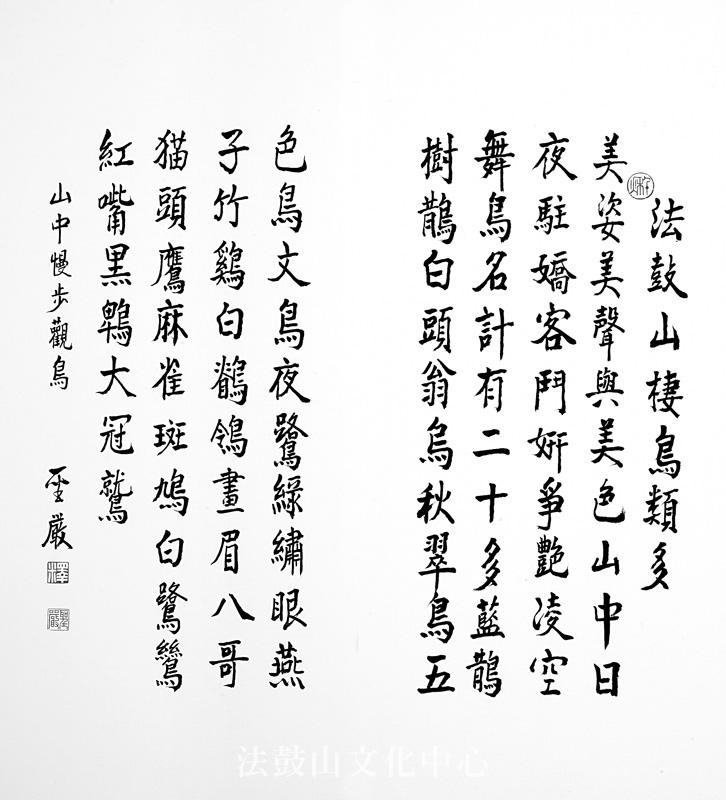 法鼓山棲鳥類多
美姿美聲與美色山中日
夜駐嬌客鬥妍爭艷凌空
舞鳥名計有二十多藍鵲
樹鵲白頭翁烏秋翠鳥五
色鳥文鳥夜鷺綠繡眼燕
子竹鷄白鶺鴒畫眉八哥
猫頭鷹麻雀斑鳩白鷺鷥
紅嘴黑鵯大冠鷲
山中慢步觀鳥
聖嚴
法鼓山文化中心